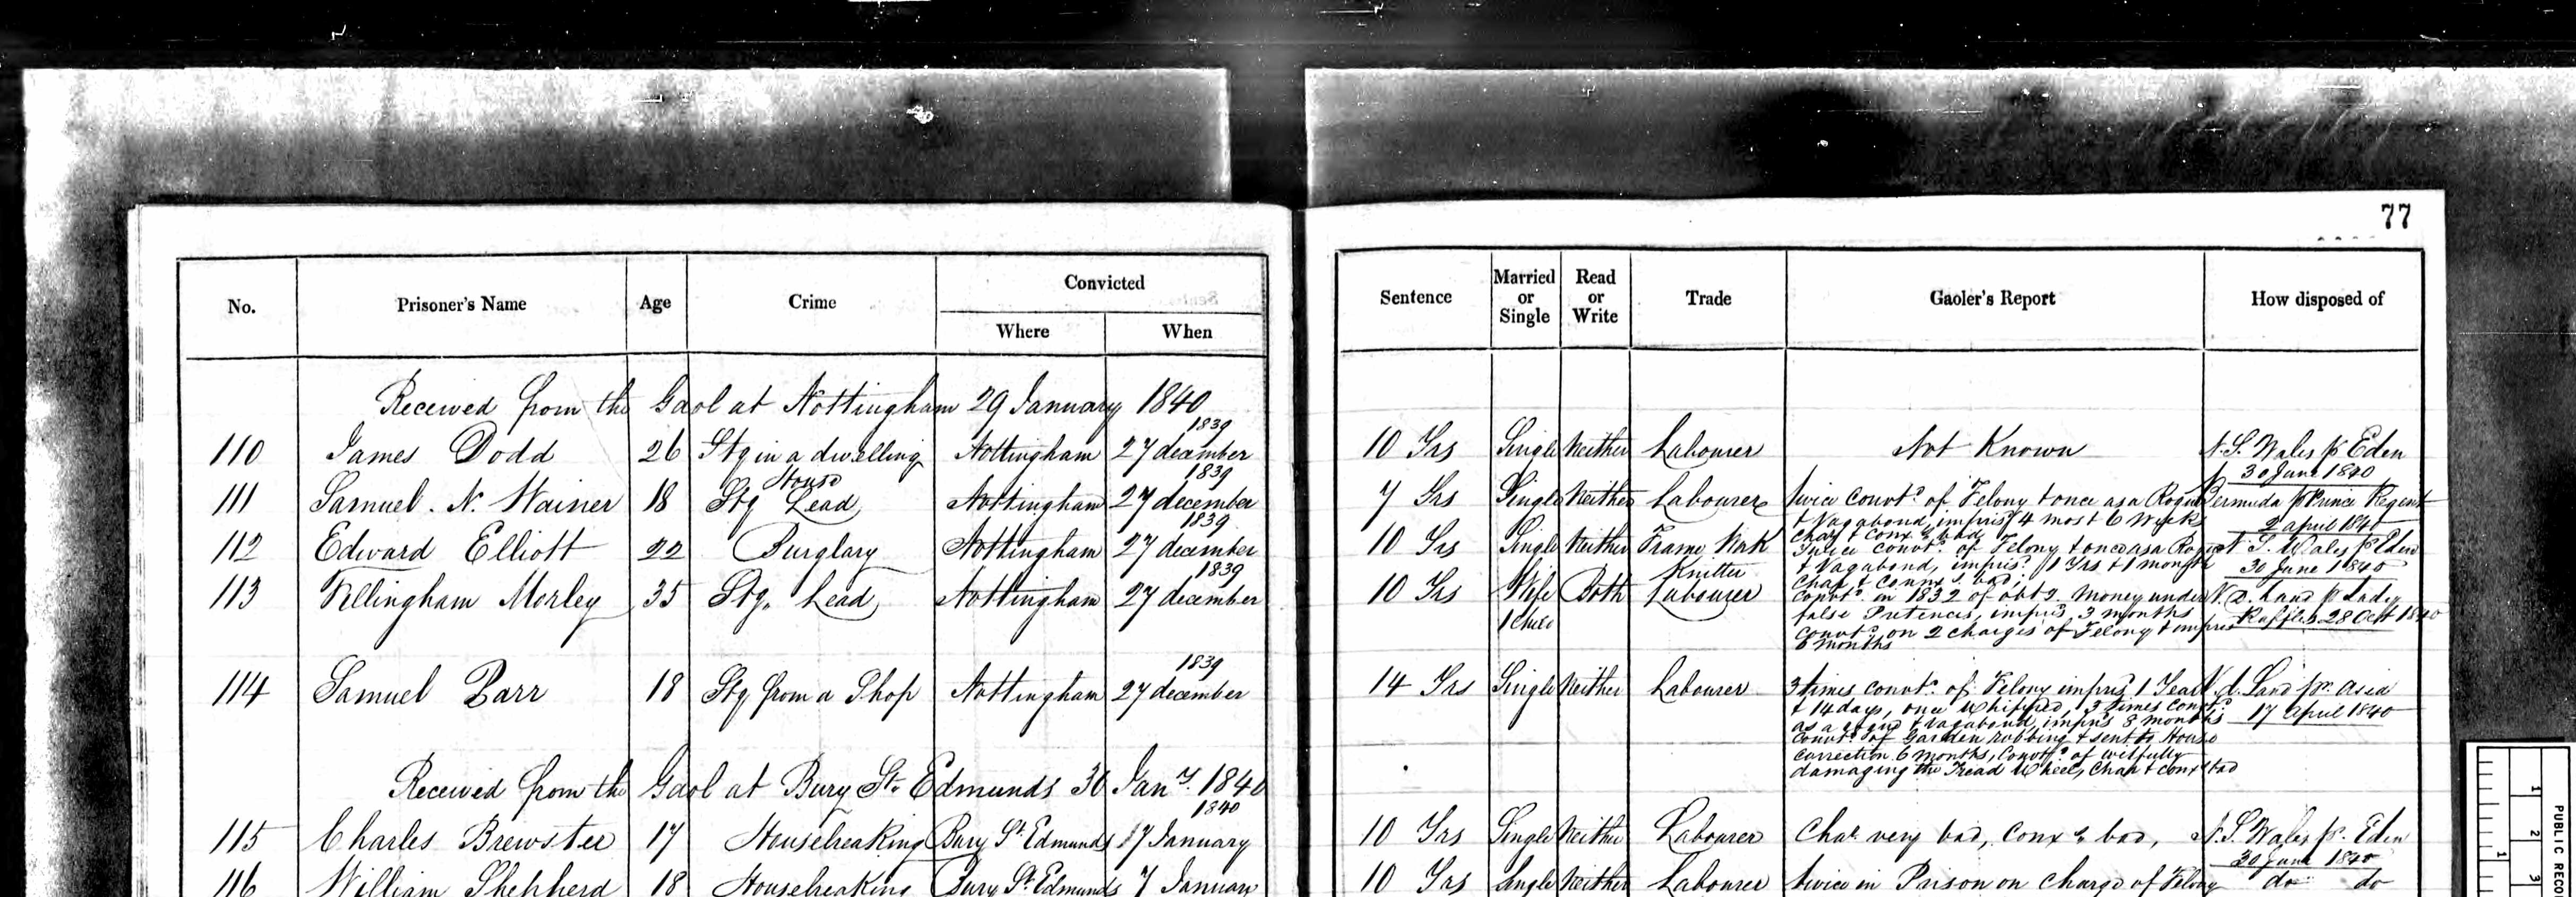 77
No. Prisoner's Name Age Crime Convicted Where When Sentence Married or Single Read or Write Trade Gaoler's Report How disposed of
Received from the Gaol at Nottingham 29 January 1840
110 James Dodd 26 Stg in a dwelling House Nottingham 27 december 1839 10 Yrs Single Neither Labourer Not Known N.S. Wales p Eden 30 June 1840
111 Samuel N. Wainer 18 Stg Lead Nottingham 27 december 1839 7 Yrs Single Neither Labourer twice convd of Felony & once as a Rogue Bermuda p Prince Regent
& Vagabond, imprisd 4 mos & 6 Weeks 2 april 1840
Char & Conx s bad
112 Edward Elliott 22 Burglary Nottingham 27 december 1839 10 Yrs Single Neither Frame Work Knitter Twice convd of Felony & once as a Rogue N. S. Wales p Eden
& Vagabond, imprisd 1 Yrs & 1 month 30 June 1840
Char & Connx s bad,
113 Ellingham Morley 35 Stg. Lead Nottingham 27 december 1839 10 Yrs Wife 1 child Both Labourer Convd in 1832 of obtg money under V. D. Land p Lady
false Pretences, imprisd 3 months Raffles 28 Oct 1840
Convd on 2 charges of Felony & impris
6 Months
114 Samuel Barr 18 Stg from a Shop Nottingham 27 december 1839 14 Yrs Single Neither Labourer 3 times convd of Felony imprisd 1 Year V. d. Land pr. Asia
& 14 days, once Whipped, 3 times Convd 17 april 1840
as a rogue & Vagabond, impris 8 months
Convd of Garden robbing & sent to House
correction 6 months, Convd of wilfully
damaging the Tread Wheel, Char & conx bad
Received from the Gaol at Bury St. Edmunds 30 Jany. 1840
115 Charles Brewster 17 Housebreaking Bury St Edmunds 17 January 1840 10 Yrs Single Neither Labourer Char very bad, Conx s bad, N. S. Wales p. Eden
30 June 1840
116 William Shepherd 18 Housebreaking Bury St Edmunds 7 January 10 Yrs Single Neither Labourer twice in Prison on charge of Felony do do
PUBLIC RECO
1
2
3
1